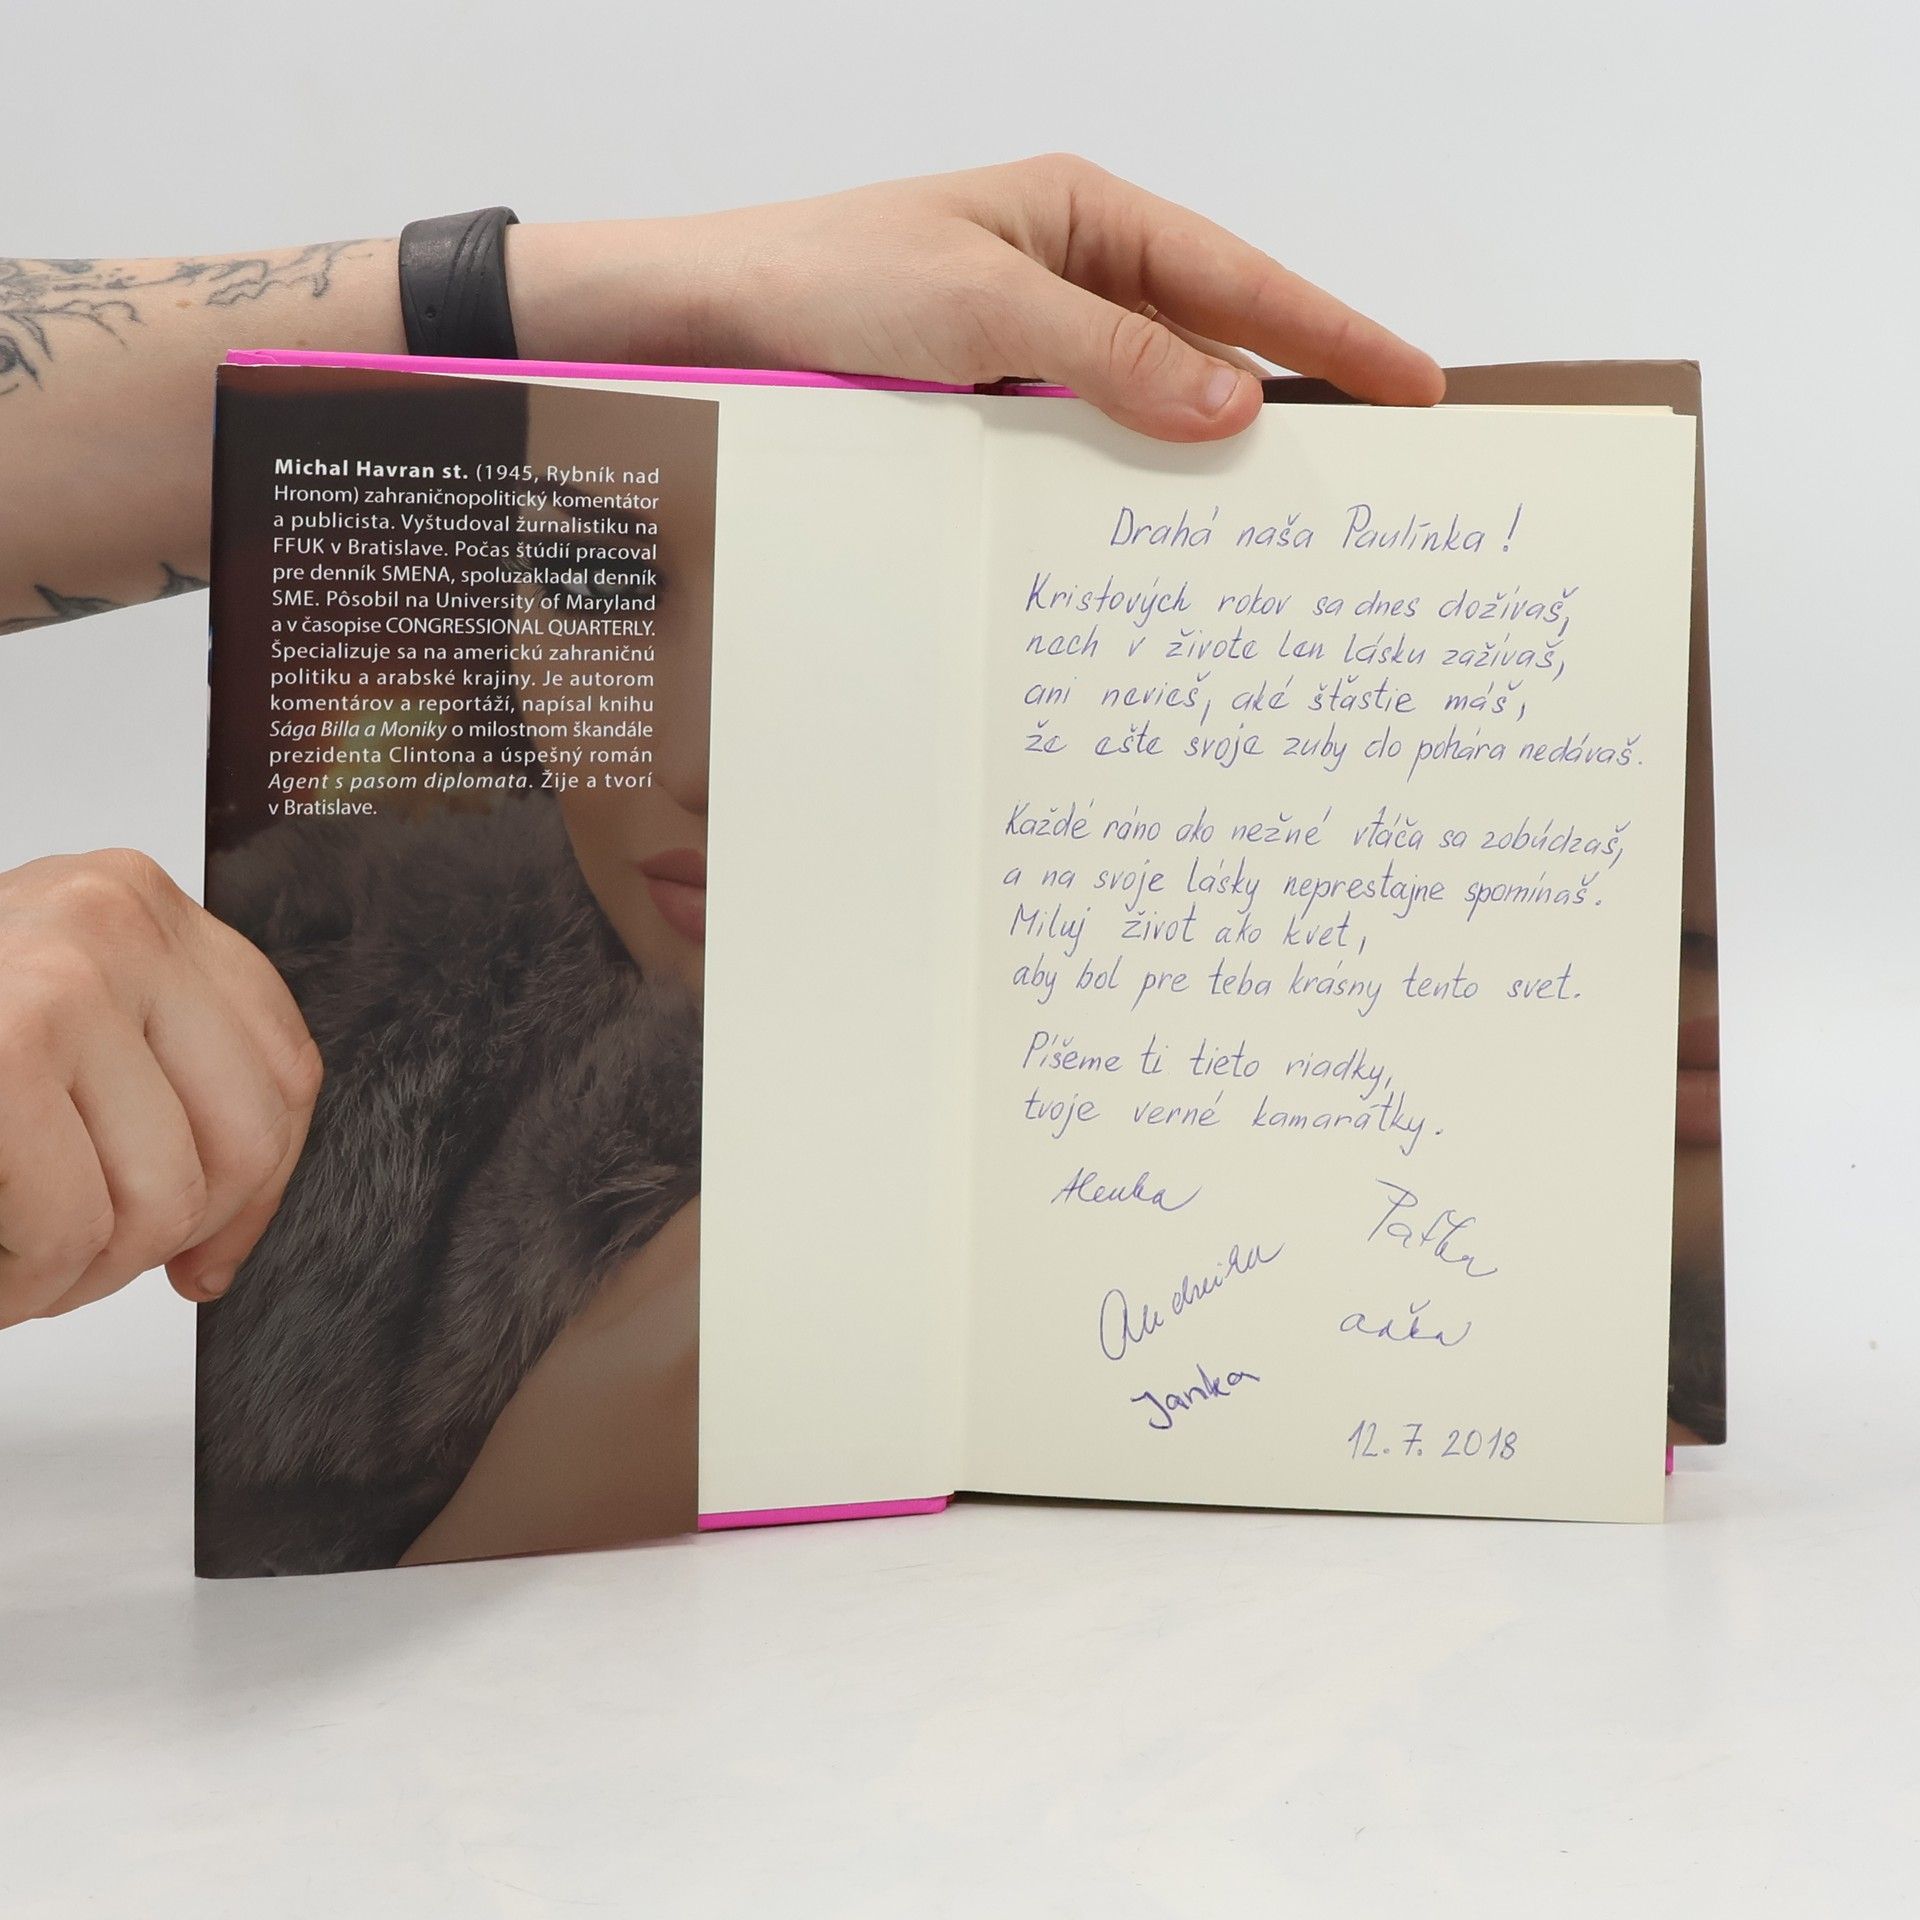 Michal Havran st. (1945, Rybník nad
Hronom) zahraničnopolitický komentátor
a publicista. Vyštudoval žurnalistiku na
FFUK v Bratislave. Počas štúdií pracoval
pre denník SMENA, spoluzakladal denník
SME. Pôsobil na University of Maryland
a v časopise CONGRESSIONAL QUARTERLY.
Špecializuje sa na americkú zahraničnú
politiku a arabské krajiny. Je autorom
komentárov a reportáží, napísal knihu
Sága Billa a Moniky o milostnom škandále
prezidenta Clintona a úspešný román
Agent s pasom diplomata. Žije a tvorí
v Bratislave.
Drahá naša Paulínka !
Kristových rokov sa dnes dožívaš,
nech v živote len lásku zažívaš,
ani nevieš, aké šťastie máš,
že ešte svoje zuby do pohára nedávaš.
Každé ráno ako nežné vtáča sa zobúdzaš,
a na svoje lásky neprestajne spomínaš.
Miluj život ako kvet,
aby bol pre teba krásny tento svet.
Píšeme ti tieto riadky,
tvoje verné kamarátky.
Alenka
Paťka
Andrejka
Aďka
Janka
12.7.2018